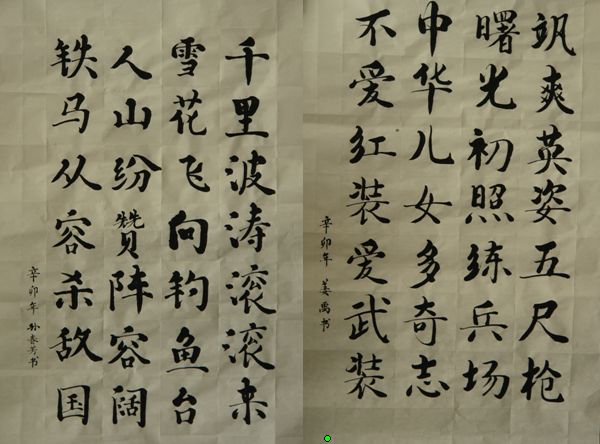 飒爽英姿五尺枪
曙光初照练兵场
中华儿女多奇志
不爱红装爱武装
辛卯年 姜禹书
千里波涛滚滚来
雪花飞向钓鱼台
人山纷赞阵容阔
铁马从容杀敌国
辛卯年 孙春芳书